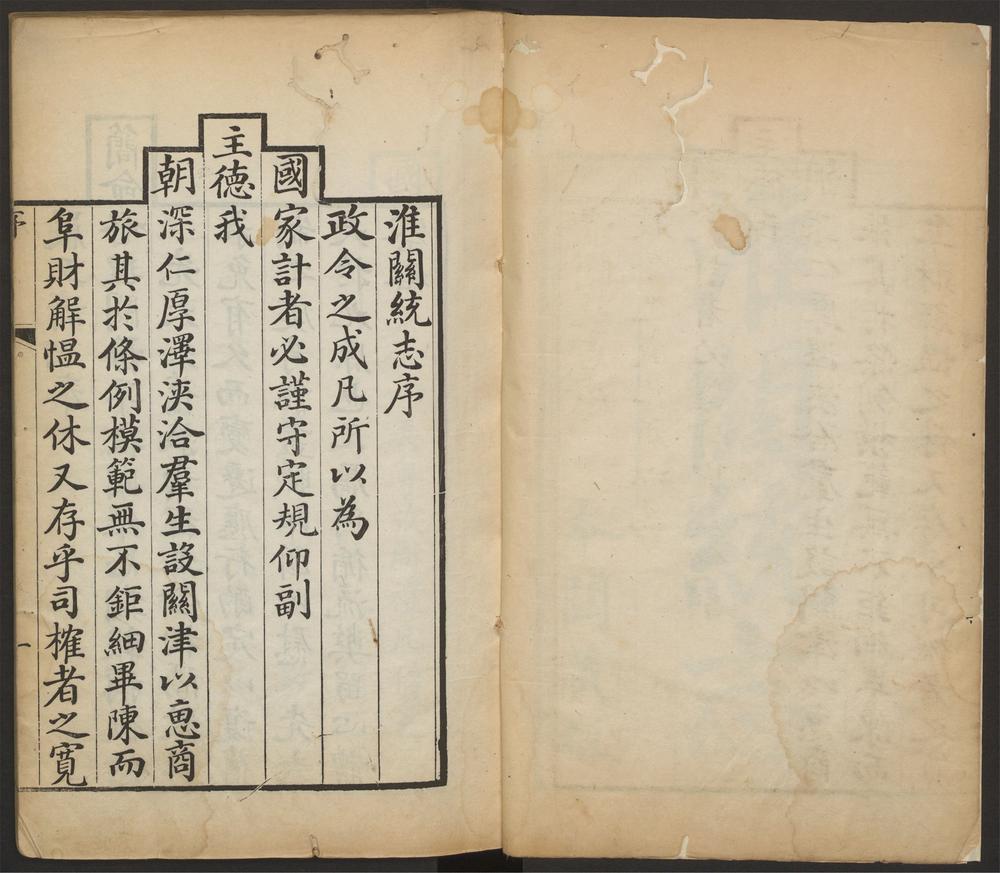 淮關統志序
政令之成凡所以為
國家計者必謹守定規仰副
主德我
朝深仁厚澤浹洽羣生設關津以惠商
旅其於條例模範無不鉅細畢陳而
阜財解愠之休又存乎司榷者之寬
序
一